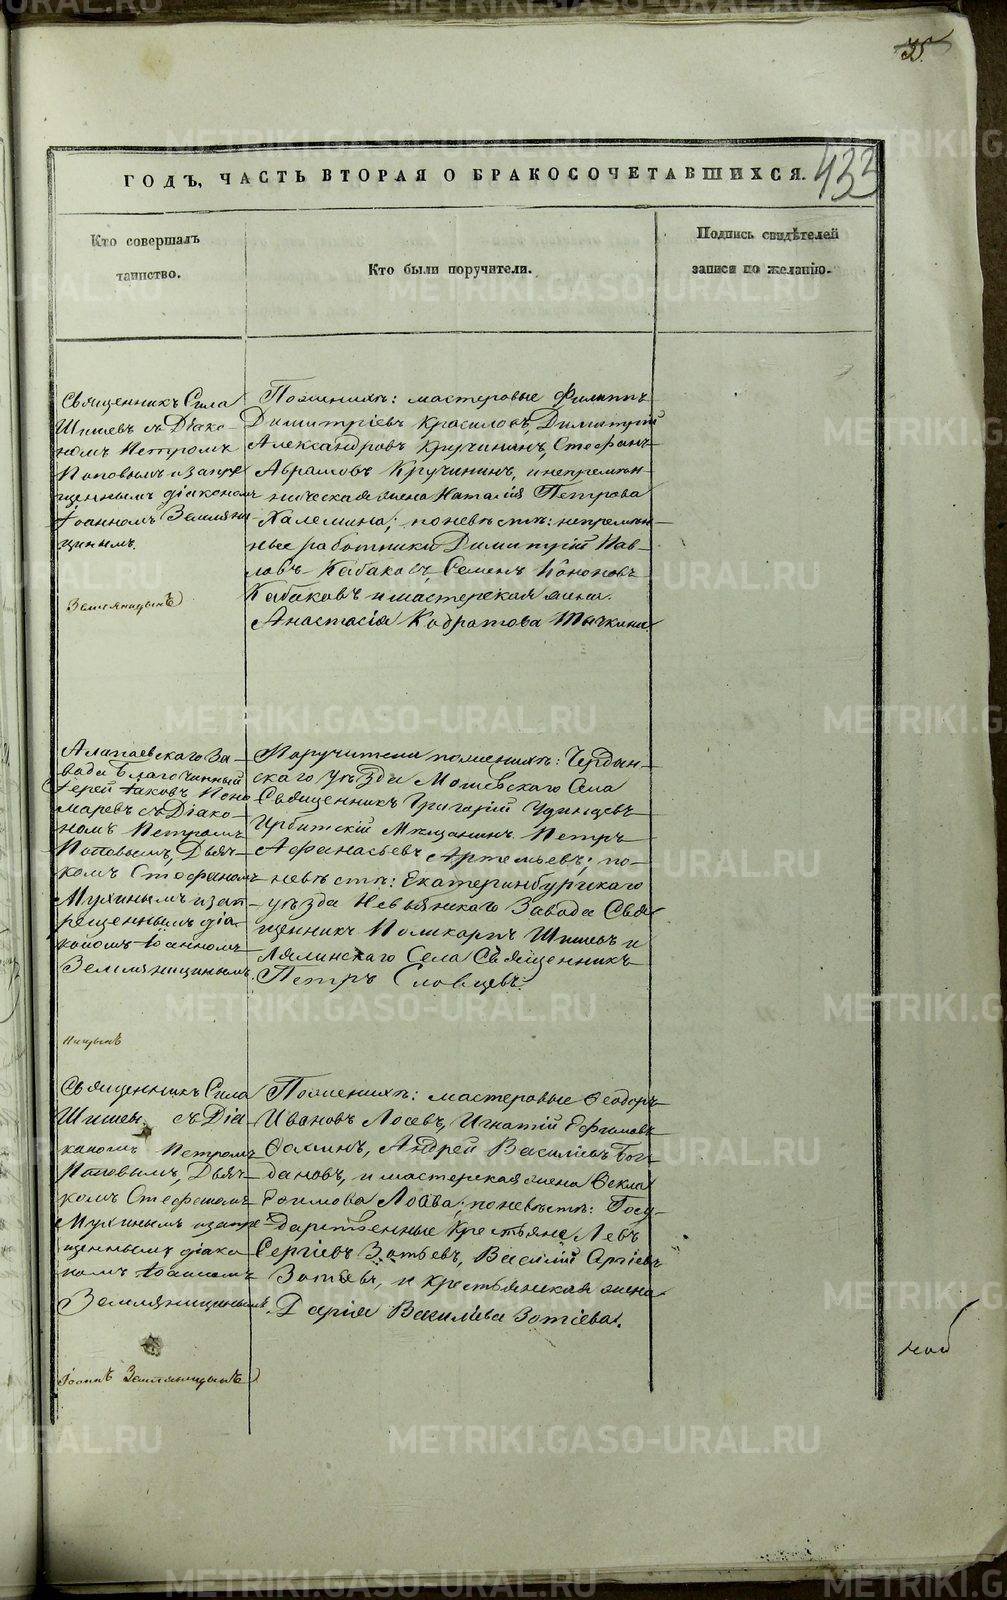 35.
433
ГОДЪ, ЧАСТЬ ВТОРАЯ О БРАКОСОЧЕТАВШИХСЯ.
Кто совершалъ
таинство.
Кто были поручители.
Подпись свидѣтелей
записи по желанію.
Священникъ Сила
Шишевъ съ Діако-
номъ Петромъ
Поповымъ и запре
щеннымъ діакономъ
Іоанномъ Земляни-
цинымъ.
Земляницынъ
По женихѣ: мастеровые Филиппъ
Димитріевъ Красиловъ, Димитрій
Александровъ Кручининъ, Стефанъ
Аврамовъ Кручининъ, и непремѣн-
ническая жена Наталія Петрова
Халемина; по невѣстѣ: непремѣн-
ные работники Димитрій Пав-
ловъ Кабаковъ, Семенъ Кононовъ
Кабаковъ и мастерская жена
Анастасія Кодратова Тычкина.
Алапаевскаго За-
вода Благочинный
Іерей Іаковъ Поно
маревъ съ Діако-
номъ Петромъ
Поповымъ, Дьяч-
комъ Стефаномъ
Мухинымъ и зап-
рещеннымъ діа-
кономъ Іоанномъ
Земляницинымъ.
Поручители по женихѣ: Чердын-
скаго уѣзда Мошевскаго Села
Священникъ Григорій Удинцевъ
Ирбитскій Мѣщанинъ Петръ
Афанасьевъ Артемьевъ; по
невѣстѣ: Екатеринбургскаго
уѣзда Невьянскаго Завода Свя-
щенникъ Поликарпъ Шишевъ и
Лялинскаго Села Священникъ
Петръ Словцевъ.
Священникъ Сила
Шишевъ съ Діа
кономъ Петромъ
Поповымъ, Дьяч-
комъ Стефаномъ
Мухинымъ и запре-
щеннымъ діако
номъ Іоанномъ
Земляницинымъ.
Іоаннъ Земляницынъ
По женихѣ: мастеровые Ѳеодоръ
Ивановъ Лосевъ, Игнатій Ефимовъ
Ѳоминъ, Андрей Василіевъ Бог-
дановъ, и мастерская жена Ѳекла
Лосева; по невѣстѣ: Госу-
дарственные Крестьяне Левъ
Сергіевъ Зотѣевъ, Василій Сергіевъ
Зотѣевъ, и крестьянская жена
Дарія Василіева Зотіева.